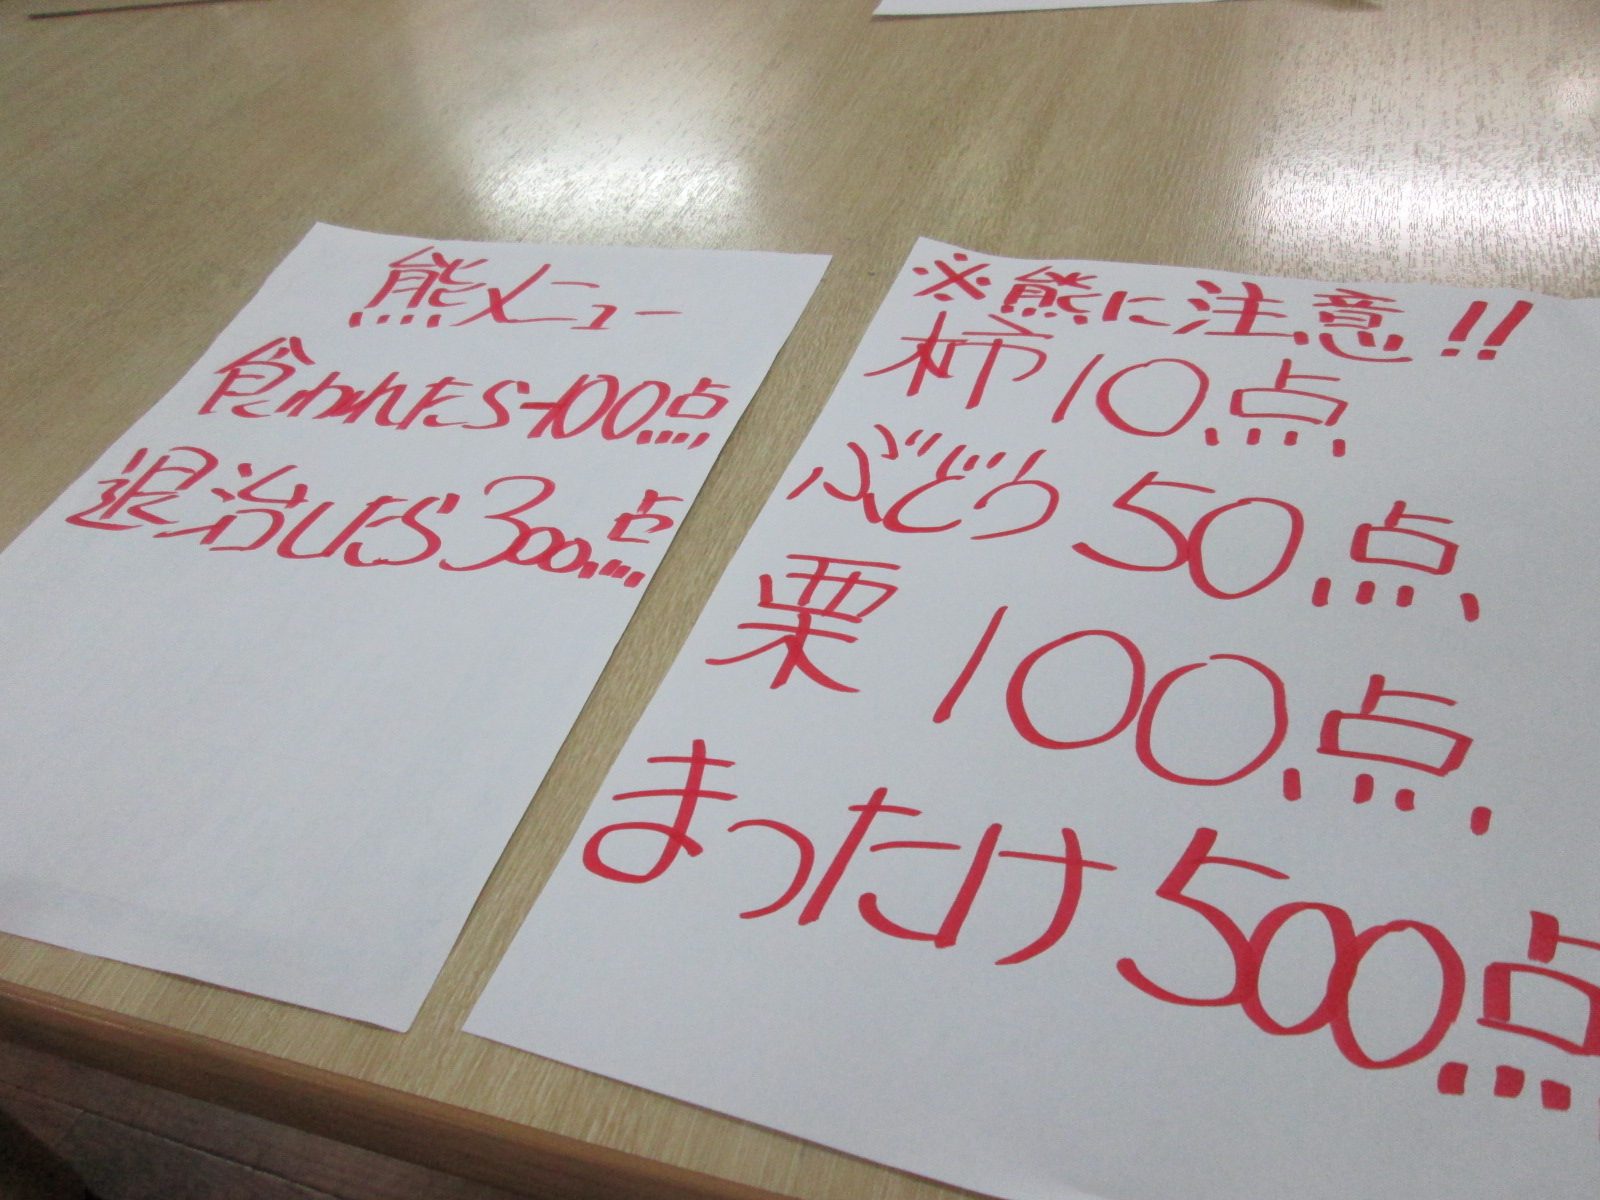 熊メニュー
食われたら-100点
退治したら300点
※熊に注意!!
柿10点
ぶどう50点
栗100点
まったけ500点